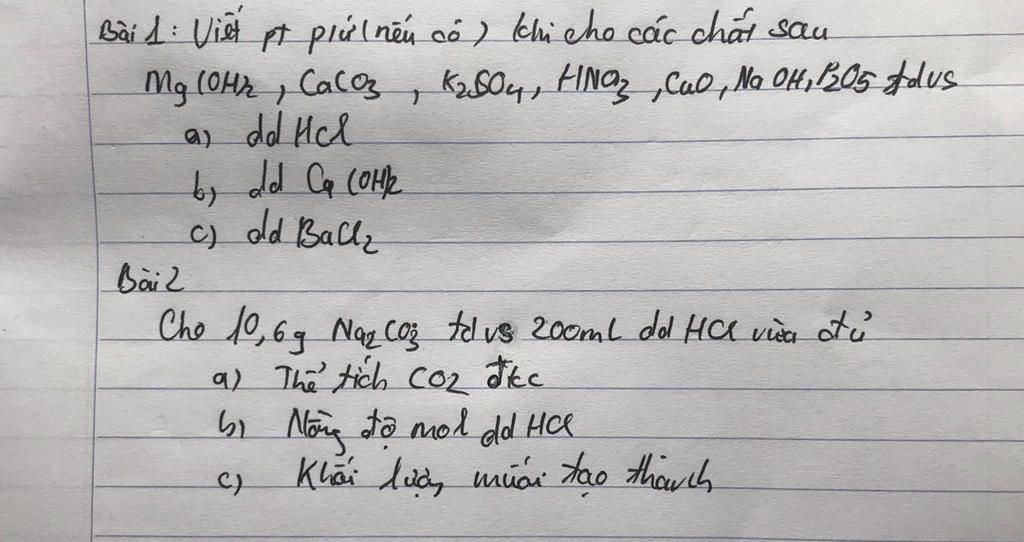 Bài 1: Viết pt p/ứ (nếu có) khi cho các chất sau
Mg(OH)2, CaCO3, K2SO4, HNO3, CuO, NaOH, P2O5 tdvs
a) dd HCl
b) dd Ca(OH)2
c) dd BaCl2
Bài 2
Cho 10,6g Na2CO3 td vs 200ml dd HCl vừa đủ
a) Thể tích CO2 đkc
b) Nồng độ mol dd HCl
c) Khối lượng muối tạo thành